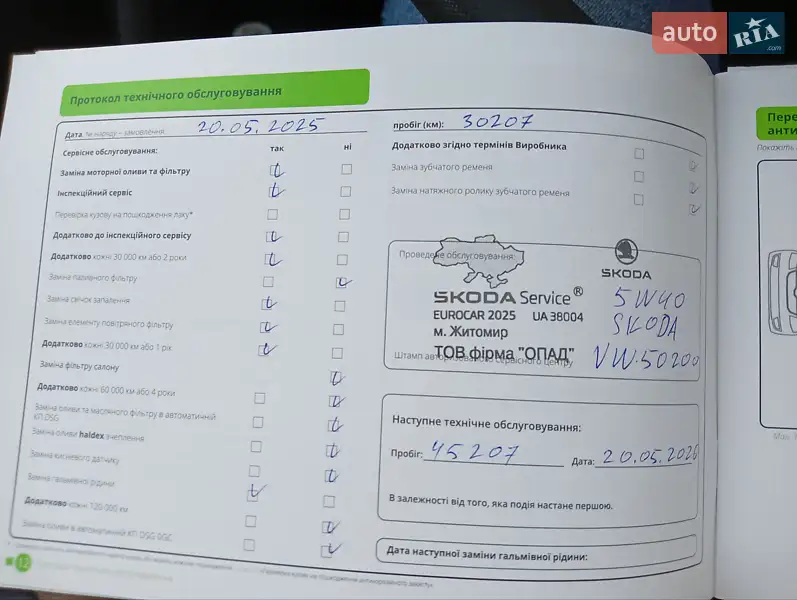 auto RIA .com
Протокол технічного обслуговування
Дата № наряду – замовлення: 20.05.2025
пробіг (км): 30207
Сервісне обслуговування: так ні
Заміна моторної оливи та фільтру
Інспекційний сервіс
Перевірка кузову на пошкодження лаку*
Додатково до інспекційного сервісу
Додатково кожні 30 000 км або 2 роки
Заміна паливного фільтру
Заміна свічок запалення
Заміна елементу повітряного фільтру
Додатково кожні 30 000 км або 1 рік
Заміна фільтру салону
Додатково кожні 60 000 км або 4 роки
Заміна оливи та масляного фільтру в автоматичній
КП DSG
Заміна оливи haldex зчеплення
Заміна кисневого датчику
Заміна гальмівної рідини
Додатково кожні 120 000 км
Заміна оливи в автоматичній КП DSG
12
Додатково згідно термінів Виробника
Заміна зубчатого ременя
Заміна натяжного ролику зубчатого ременя
Проведене обслуговування:
SKODA
SKODA Service®
EUROCAR 2025 UA 38004
м. Житомир
ТОВ фірма "ОПАД"
Штамп авторизованого сервісного центру
5W40
SKODA
VW.50200
Наступне технічне обслуговування:
Пробіг: 45207 Дата: 20.05.2026
В залежності від того, яка подія настане першою.
Дата наступної заміни гальмівної рідини:
Пере
анти
Покажіть